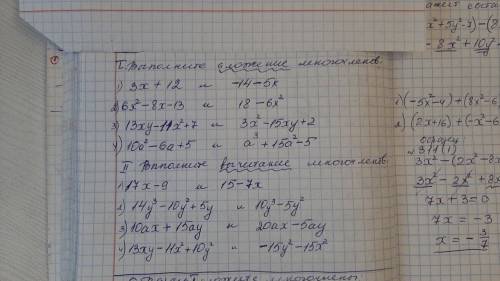 I. Выполните сложение многочленов
1) 3x + 12 и -14-5x
2) 6x²-8x-13 и 18-6x²
3) 13xy-11x²+7 и 3x²-15xy+2
4) 10a²-6a+5 и a³+15a²-5
II Выполните вычитание многочленов
1) 17x-9 и 15-7x
2) 14y³-10y²+5y и 10y³-5y²
3) 10ax + 15ay и 20ax-5ay
4) 13xy-11x²+10y² и -15y²-15x²
x²+5y²-7)-(2
-8x²+10y²
(-5x²-4)+(8x²-6
(2x+16)+(-x²-6
311(1)
3x²-(2x²-8x
3x²-2x²+8x
7x+3=0
7x=-3
x=-3/7